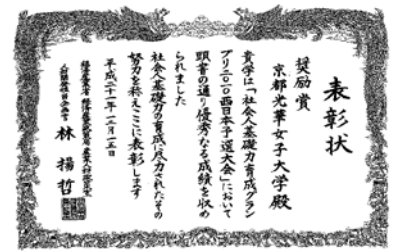 表彰状
奨励賞
京都光華女子大学殿
貴学は「社会人基礎力育成グラン
プリ二〇一〇西日本予選大会」において
頭書の通り優秀なる成績を収め
られました
社会人基礎力の育成に尽力されたその
努力を称えここに表彰します
平成二十一年十二月十五日
林 揚哲